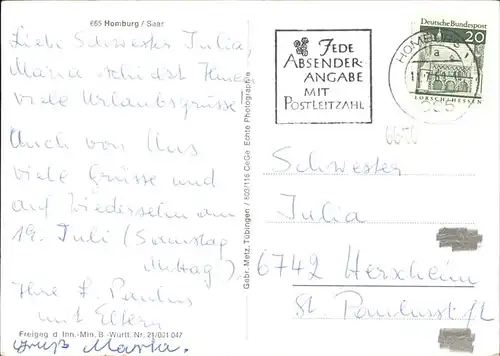 665 Homburg / Saar
Liebe Schwester Julia,
Maria schickt Ihnen
viele Urlaubsgrüsse!
Auch von Uns
viele Grüsse und
auf Wiedersehn am
19. Juli (Samstag
Mittag).
Ihre F. Paulus
mit Eltern
Gruß Maria.
Freigeg. d. Inn.-Min. B.-Württ. Nr. 21/001 047
Gebr. Metz, Tübingen / 603/116 CeGe Echte Photographie
JEDE
ABSENDER-
ANGABE
MIT
POSTLEITZAHL
HOMBURG
Deutsche Bundespost
20
LORSCH/HESSEN
Schwester
Julia
6742 Herxheim
St. Paulusstift